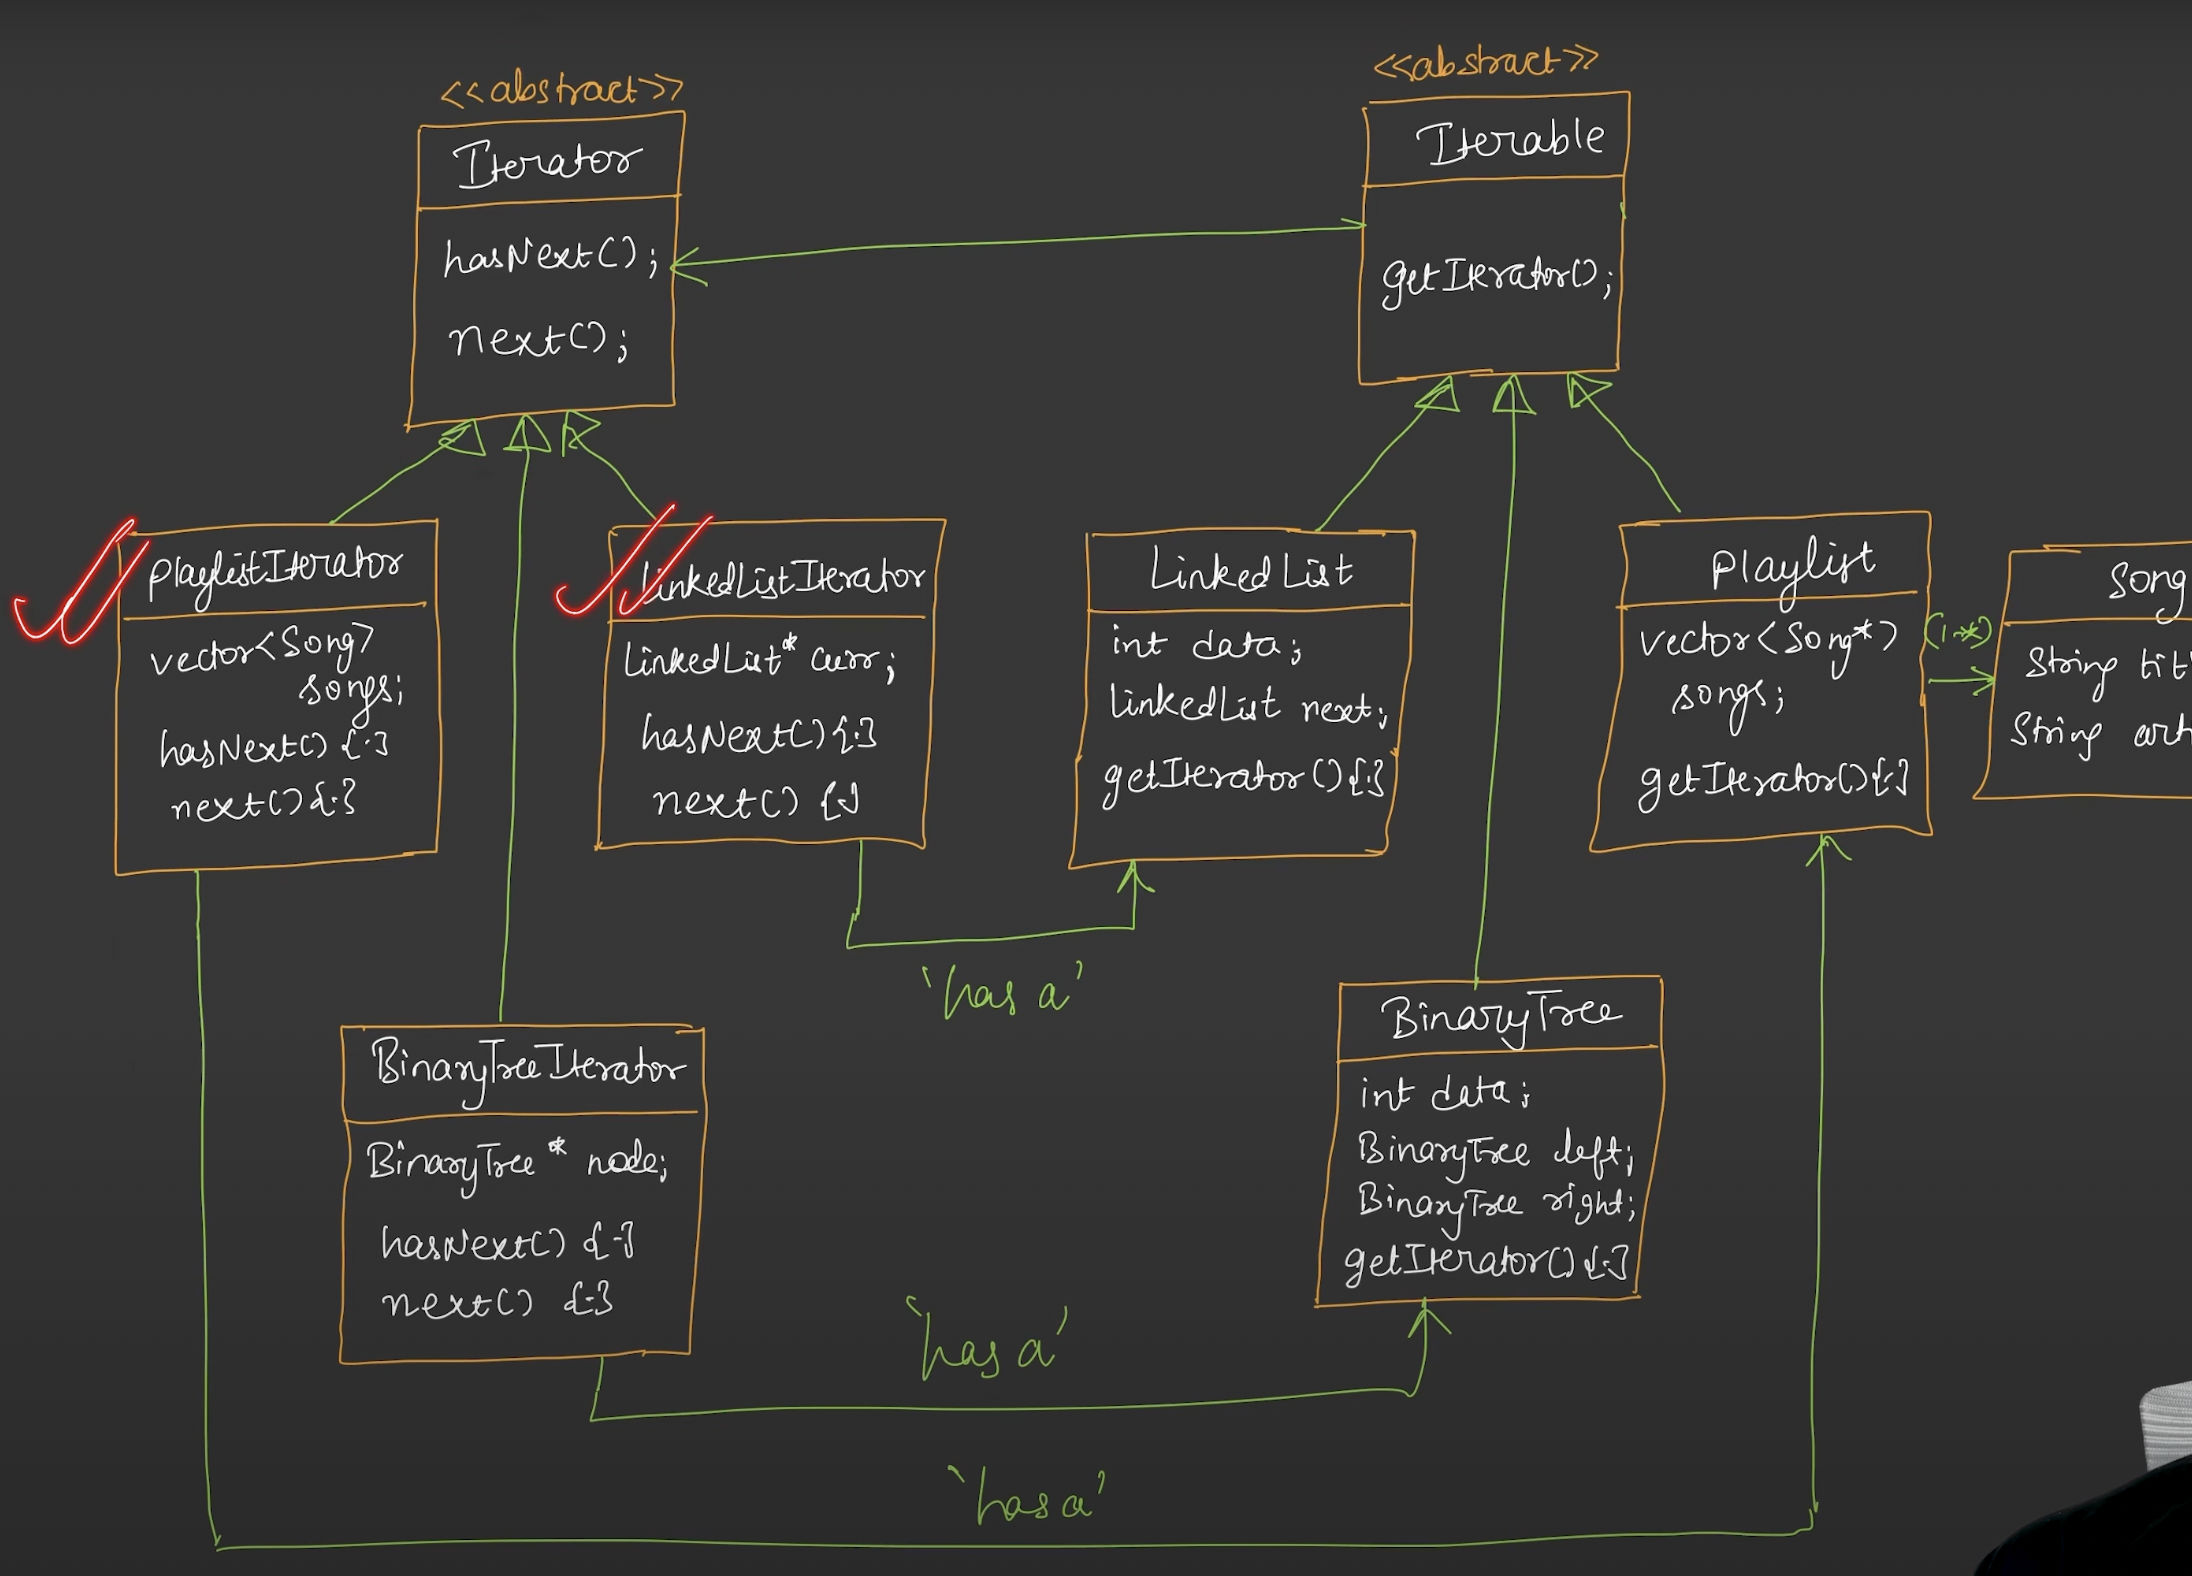 <<abstract>>
Iterator
hasNext();
next();
<<abstract>>
Iterable
getIterator();
PlaylistIterator
vector<Song>
songs;
hasNext() {.}
next() {.}
LinkedListIterator
LinkedList* curr;
hasNext() {.}
next() {.}
LinkedList
int data;
linkedList next;
getIterator() {.}
Playlist
vector<Song*>
songs;
getIterator() {.}
(1-*)
Song
String tit
String art
'has a'
BinaryTreeIterator
BinaryTree* node;
hasNext() {-}
next() {-}
BinaryTree
int data;
BinaryTree left;
BinaryTree right;
getIterator() {.}
'has a'
'has a'